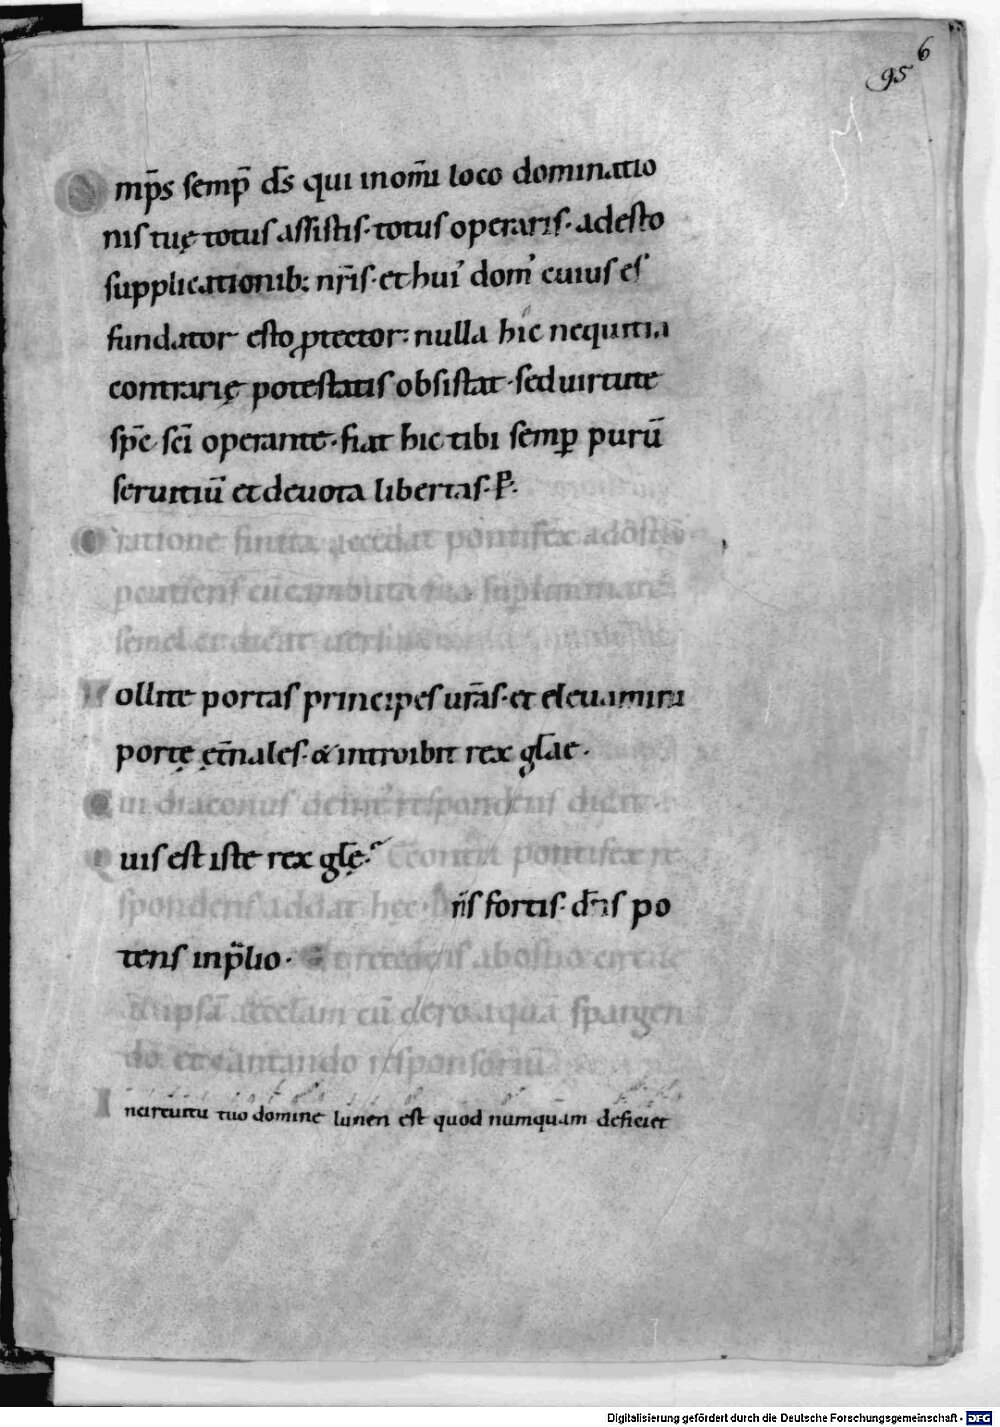 6
95
Omp̄s semp̄ ds̄ qui inom̄i loco dominatio
nis tuę totus assistis · totus operaris · adesto
supplicationib; nr̄is · et hui' dom' cuius es
fundator esto ꝓtector: nulla hic nequitia
contrarię potestatis obsistat · sed uirtute
sp̄c sc̄i operante · fiat hic tibi semꝑ purū
seruitiū et deuota libertas · P̄ ·
Oratione finita accedat pontifex ad ostiū
percutiens cū cambuta sua sup̄liminare
semel et dicat
Tollite portas principes ur̄as · et eleuamini
portę ęt̄nales · & introibit rex gl̄ae ·
Cui diaconus deint' respondens dicat
Quis est iste rex gl̄ę · Econt̄ra pontifex re
spondens addat hec · Dn̄s fortis · dn̄s po
tens inp̄lio · recedens ab ostio circu
ipsā ecclam cū clero aquā spargen
do et cantando responsoriū
Incircuitu tuo domine lumen est quod numquam deficiet
Digitalisierung gefördert durch die Deutsche Forschungsgemeinschaft - DFG